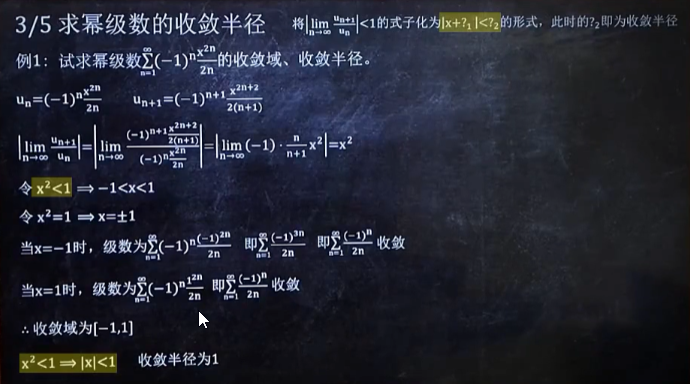 3/5 求幂级数的收敛半径
将|lim n→∞ uₙ₊₁/uₙ|<1的式子化为|x+?₁|<?₂的形式，此时的?₂即为收敛半径
例1：试求幂级数∑_{n=1}^{∞}(−1)ⁿ x²ⁿ/2n 的收敛域、收敛半径。
uₙ=(−1)ⁿ x²ⁿ/2n uₙ₊₁=(−1)ⁿ⁺¹ x²ⁿ⁺²/2(n+1)
|lim n→∞ uₙ₊₁/uₙ|=|lim n→∞ ((−1)ⁿ⁺¹ x²ⁿ⁺²/2(n+1))/((−1)ⁿ x²ⁿ/2n)|=|lim n→∞ (−1)·n/(n+1) x²|=x²
令 x²<1 ⟹ −1<x<1
令 x²=1 ⟹ x=±1
当x=−1时，级数为∑_{n=1}^{∞}(−1)ⁿ (−1)²ⁿ/2n 即∑_{n=1}^{∞} (−1)³ⁿ/2n 即∑_{n=1}^{∞} (−1)ⁿ/2n 收敛
当x=1时，级数为∑_{n=1}^{∞}(−1)ⁿ 1²ⁿ/2n 即∑_{n=1}^{∞} (−1)ⁿ/2n 收敛
∴收敛域为[−1,1]
x²<1 ⟹ |x|<1 收敛半径为1